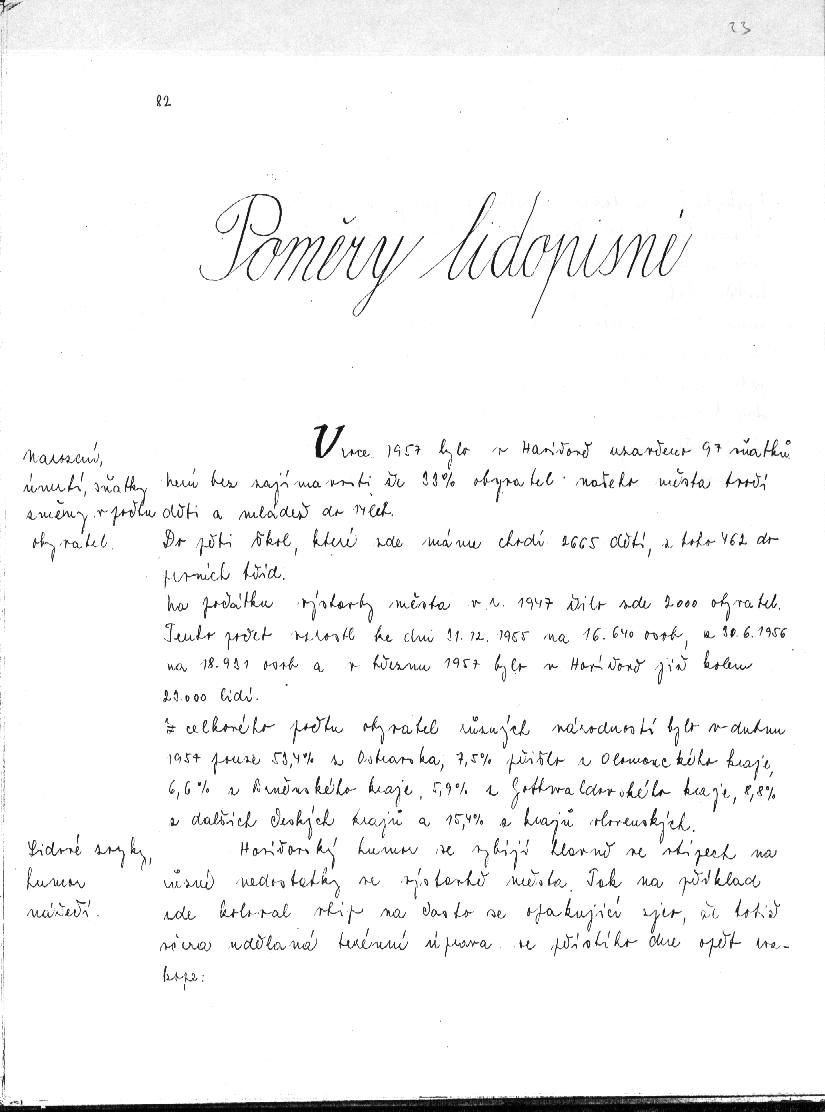 23
82
Poměry lidopisné
Narození,
úmrtí, sňatky
změny v počtu
obyvatel.
V roce 1957 bylo v Havířově uzavřeno 97 sňatků
není bez zajímavosti že 33% obyvatel našeho města tvoří
děti a mládež do 14 let.
Do pěti škol, které zde máme chodí 2665 dětí, z toho 462 do
prvních tříd.
Na počátku výstavby města v r. 1947 žilo zde 2000 obyvatel.
Tento počet vzrostl ke dni 31.12. 1955 na 16.640 osob, a 30.6.1956
na 18.931 osob a v březnu 1957 bylo v Havířově již kolem
23.000 lidí.
Z celkového počtu obyvatel různých národností bylo v dubnu
1957 pouze 53,4% z Ostravska, 7,5% přišlo z Olomouckého kraje,
6,6% z Brněnského kraje, 5,9% z Gottwaldovského kraje, 8,8%
z dalších českých krajů a 15,4% z krajů slovenských.
Lidové zvyky,
humor
nářečí.
Havířovský humor se vybíjí hlavně ve vtipech na
různé nedostatky ve výstavbě města. Tak na příklad
zde koloval vtip na často se opakující zjev, že totiž
včera udělaná terénní úprava se příštího dne opět roz-
kope: